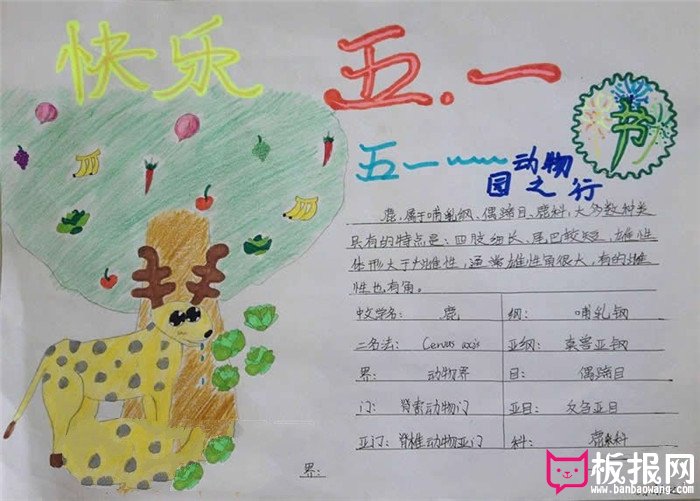 快乐 五.一
节
五一~~~动物
园之行
鹿,属于哺乳钢、偶蹄目、鹿科,大多数种类
具有的特点是:四肢细长、尾巴较短,雄性
体形大于雌性,通常雄性角很大,有的雌
性也有角。
中文学名: 鹿 纲: 哺乳钢
二名法: Cervus axis 亚纲: 真兽亚钢
界: 动物界 目: 偶蹄目
门: 脊索动物门 亚目: 反刍亚目
亚门: 脊椎动物亚门 科: 鹿科
界:
板报网
www.banbaowang.com